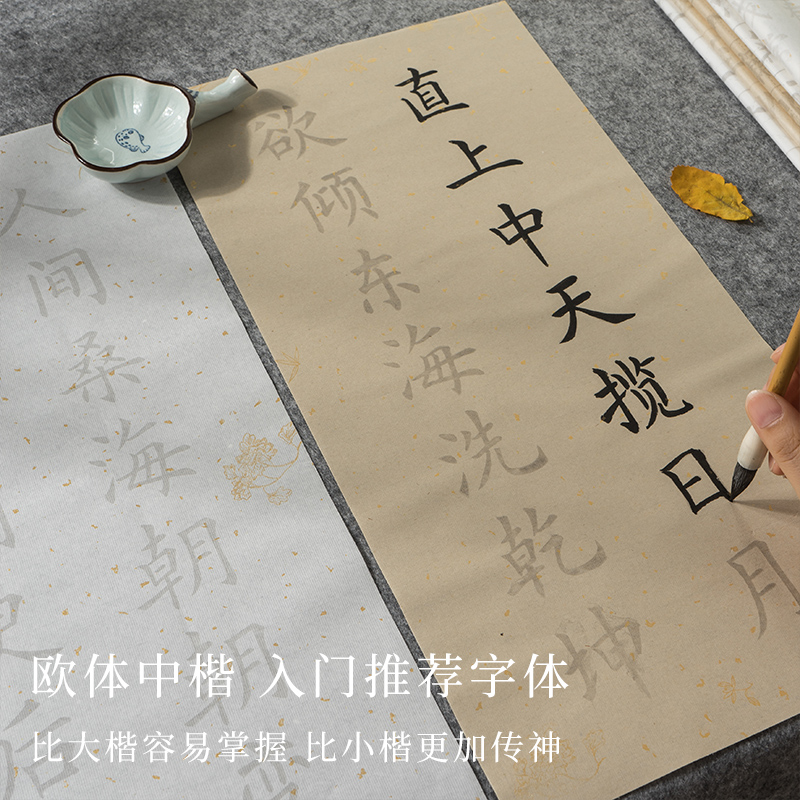 直上中天揽日月
欲倾东海洗乾坤
人间桑海朝朝
更后
欧体中楷 入门推荐字体
比大楷容易掌握 比小楷更加传神